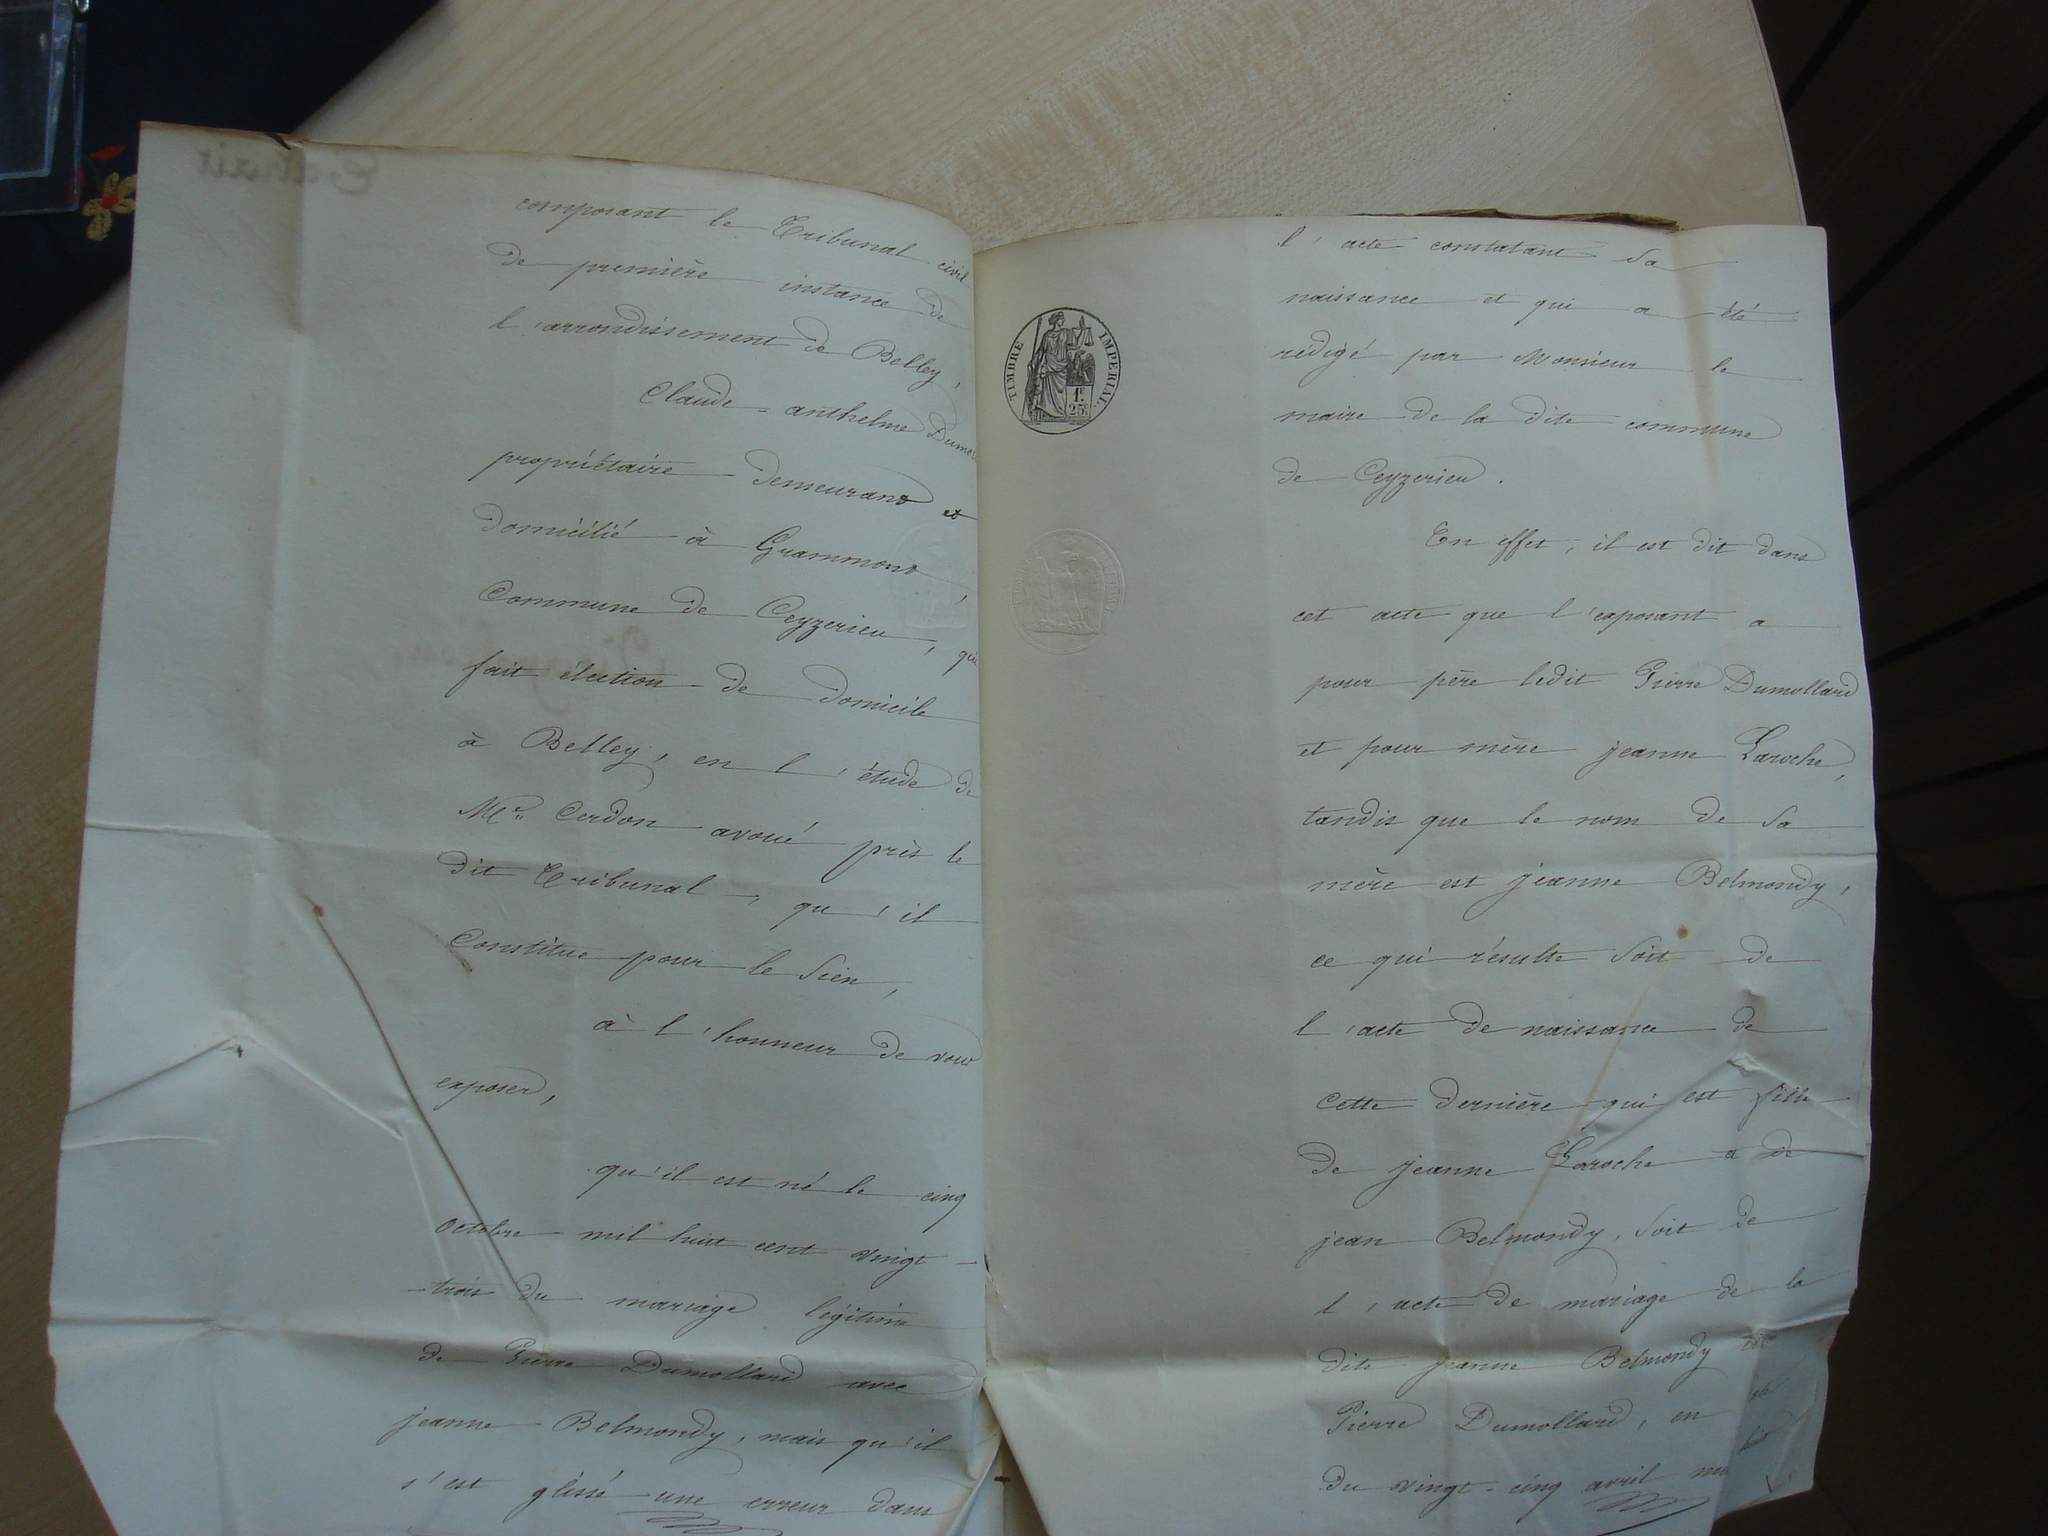 Extrait
composant le Tribunal civil
de première instance de
l'arrondissement de Belley,
Claude = anthelme
propriétaire demeurant et
domicilié à Grammont,
Commune de Ceyzerieu, qui
fait élection de domicile
à Belley, en l'étude de
Me Cerdon avoué près le
dit Tribunal, qu'il
Constitue pour le sien,
à l'honneur de vous
exposer,
qu'il est né le cinq
octobre mil huit cent vingt-
-trois du mariage légitime
de Pierre Dumollard avec
jeanne Belmondy, mais qu'il
s'est glissé une erreur dans
TIMBRE IMPERIAL
1F
25C
l'acte constatant sa
naissance et qui a été
rédigé par Monsieur le
maire de la dite commune
de Ceyzerieu.
En effet, il est dit dans
cet acte que l'exposant a
pour père ledit Pierre Dumollard
et pour mère jeanne Laroche,
tandis que le nom de sa
mère est jeanne Belmondy,
ce qui résulte soit de
l'acte de naissance de
Cette dernière qui est fille
de jeanne Laroche & de
jean Belmondy, soit de
l'acte de mariage de la
dite jeanne Belmondy
Pierre Dumollard, en
du vingt-cinq avril